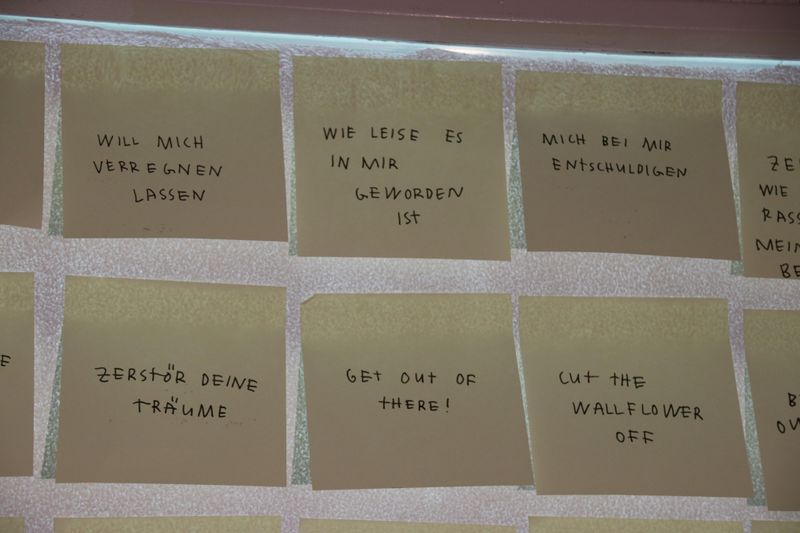 WILL MICH
VERREGNEN
LASSEN
WIE LEISE ES
IN MIR
GEWORDEN
IST
MICH BEI MIR
ENTSCHULDIGEN
WIE
ZERSTÖR DEINE
TRÄUME
GET OUT OF
THERE!
CUT THE
WALLFLOWER
OFF